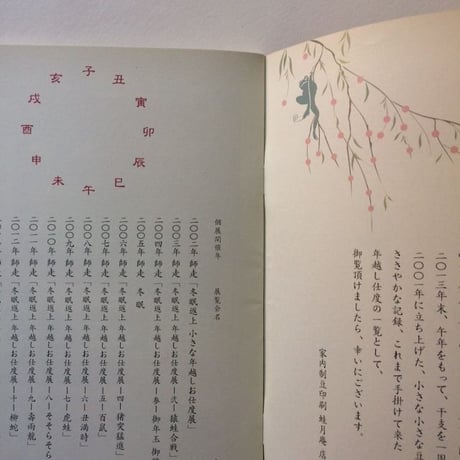 二〇一三年末、午年をもって、干支を一回
二〇〇一年に立ち上げた、小さな小さな
ささやかな記録、これまで手掛けて来た
年越し仕度の一覧として、
御覧頂けましたら、幸いにございます。
家内制豆印刷 蛙月庵 店
子
丑
寅
卯
辰
巳
午
未
申
酉
戌
亥
個展開催年 展覧会名
二〇〇二年 師走 「冬眠返上 小さな年越しお仕度展」
二〇〇三年 師走 「冬眠返上 年越しお仕度展ー弐ー猿蛙合戦」
二〇〇四年 師走 「冬眠返上 年越しお仕度展ー参ー御年玉 御
二〇〇五年 師走 冬眠
二〇〇六年 師走 「冬眠返上 年越しお仕度展ー四ー猪突猛進」
二〇〇七年 師走 「冬眠返上 年越しお仕度展ー五ー百鼠」
二〇〇八年 師走 「冬眠返上 年越しお仕度展ー六ー丑満時」
二〇〇九年 師走 「冬眠返上 年越しお仕度展ー七ー虎蛙」
二〇一〇年 師走 「冬眠返上 年越しお仕度展ー八ーそそらそら
二〇一一年 師走 「冬眠返上 年越しお仕度展ー九ー壽雨龍」
二〇一二年 師走 「冬眠返上 年越しお仕度展ー十ー柳蛇」